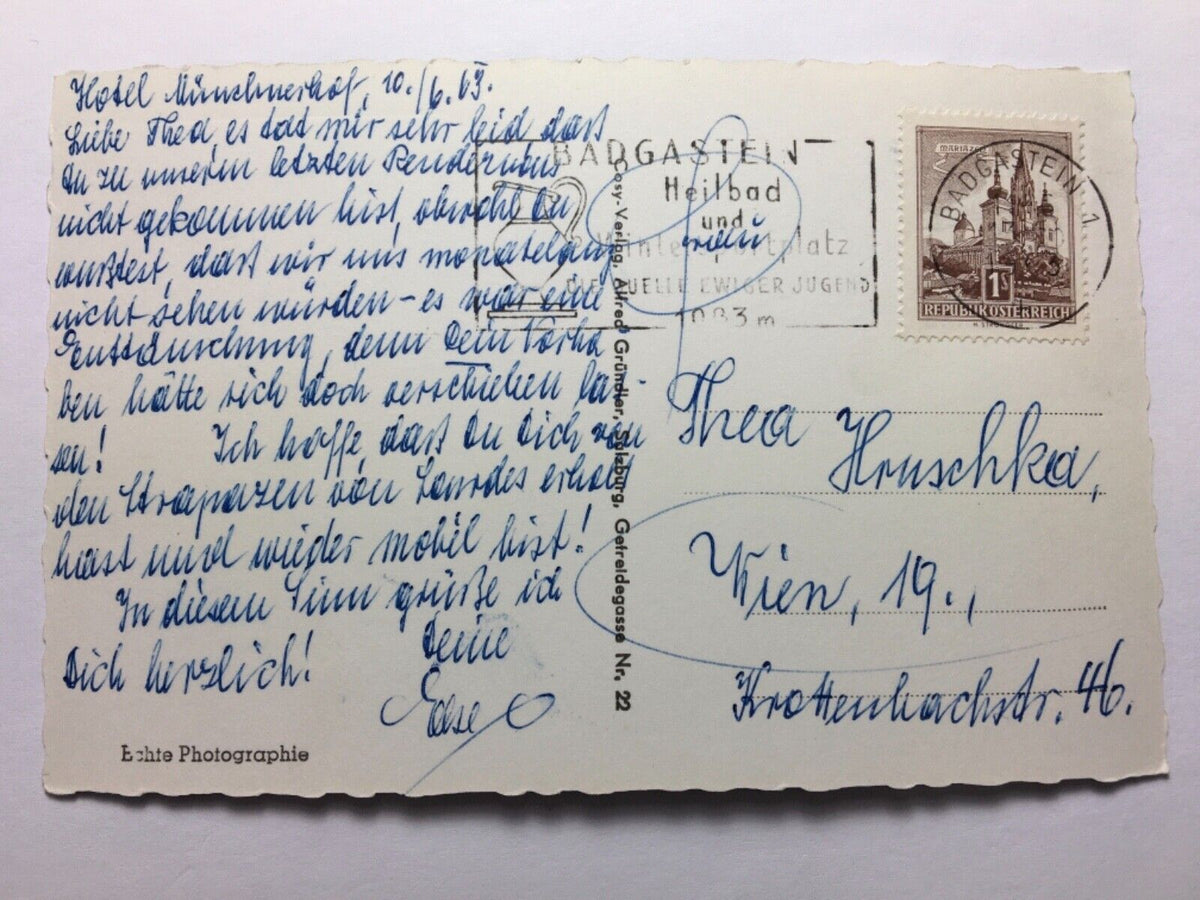 Hotel Münchnerhof, 10./6.63.
Liebe Thea, es tat mir sehr leid daß
Du zu unserm letzten Rendezvous
nicht gekommen bist, obwohl Du
wußtest, daß wir uns monatelang
nicht sehen würden - es war eine
Enttäuschung, denn Dein Vorha
ben hätte sich doch verschieben las-
sen! Ich hoffe, daß Du Dich von
den Strapazen von Lourdes erholt
hast und wieder mobil bist!
In diesem Sinn grüße ich
Dich herzlich! Deine
Echte Photographie
Cosy-Verlag, Alfred Gründler, Salzburg, Getreidegasse Nr. 22
BADGASTEIN
Heilbad
und
Wintersportplatz
DIE QUELLE EWIGER JUGEND
1083 m
MARIAZELL
BADGASTEIN 1
1S
REPUBLIK ÖSTERREICH
Frau
Thea Hruschka,
Wien, 19.,
Krottenbachstr. 46.